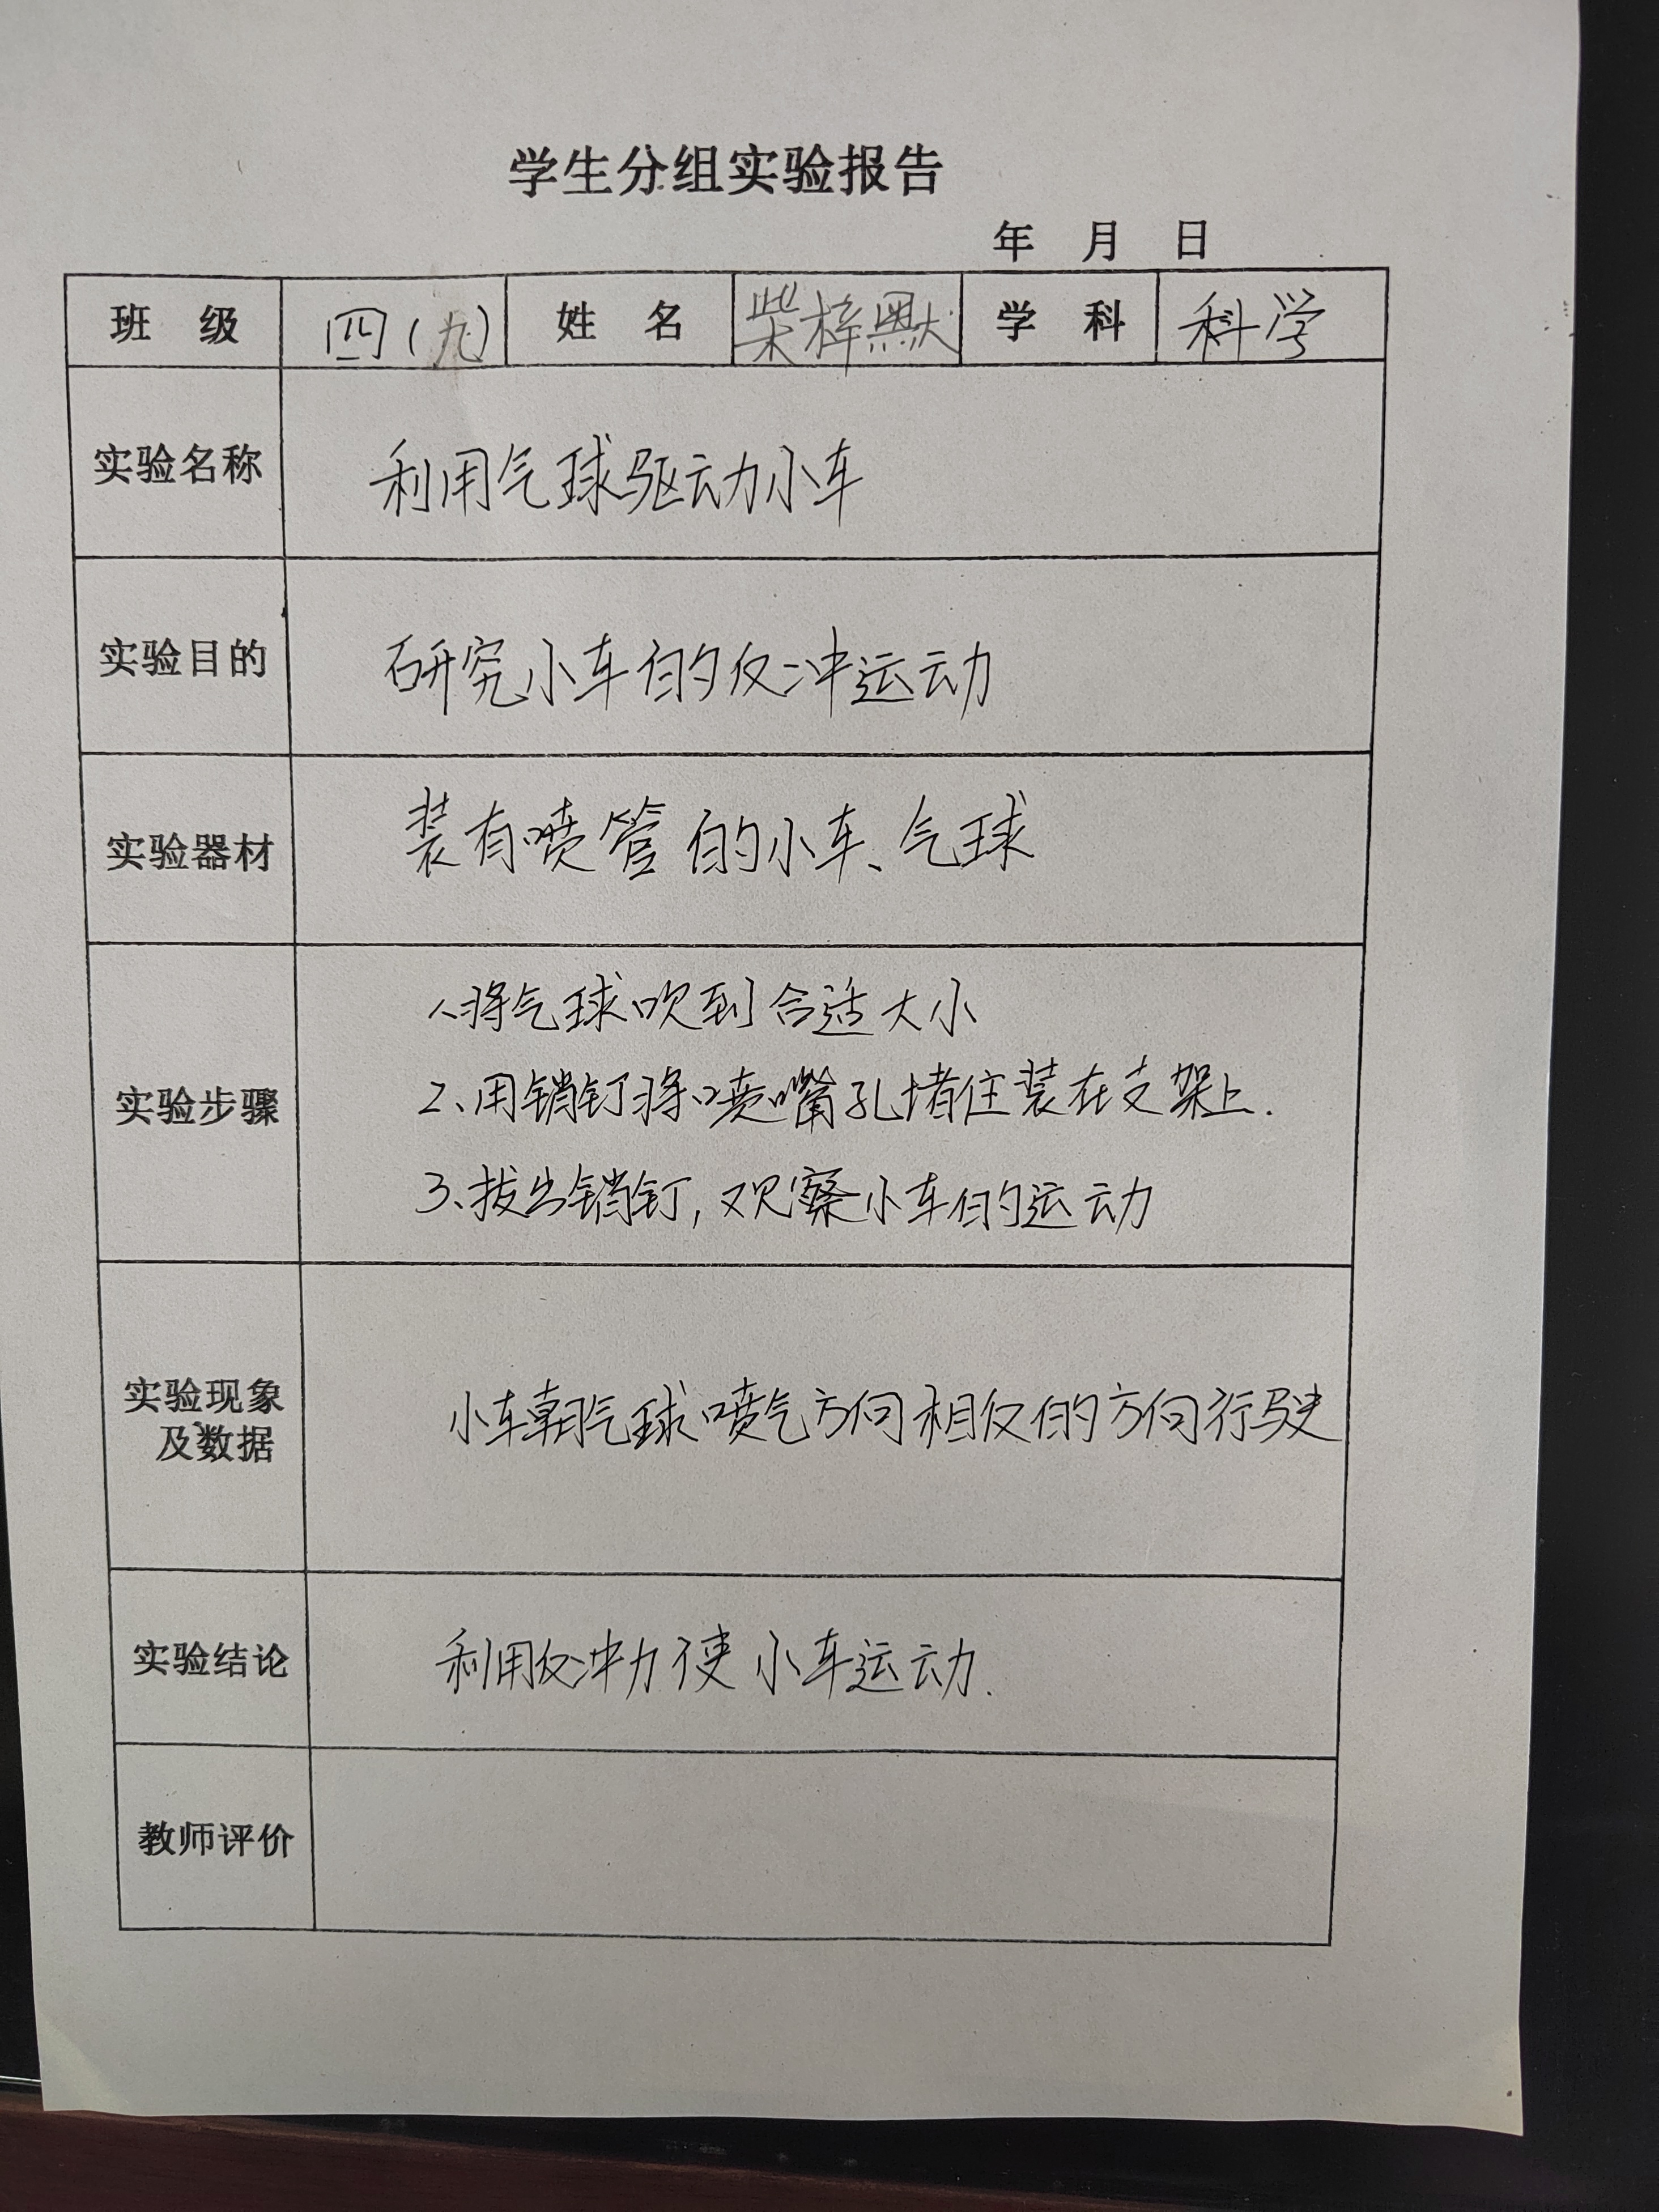 学生分组实验报告
年 月 日
班 级 四(九) 姓 名 柴梓默 学 科 科学
实验名称 利用气球驱动小车
实验目的 研究小车的反冲运动
实验器材 装有喷管的小车、气球
1、将气球吹到合适大小
实验步骤 2、用销钉将喷嘴孔堵住装在支架上.
3、拔出销钉,观察小车的运动
实验现象
及数据 小车朝气球喷气方向相反的方向行驶
实验结论 利用反冲力使小车运动.
教师评价